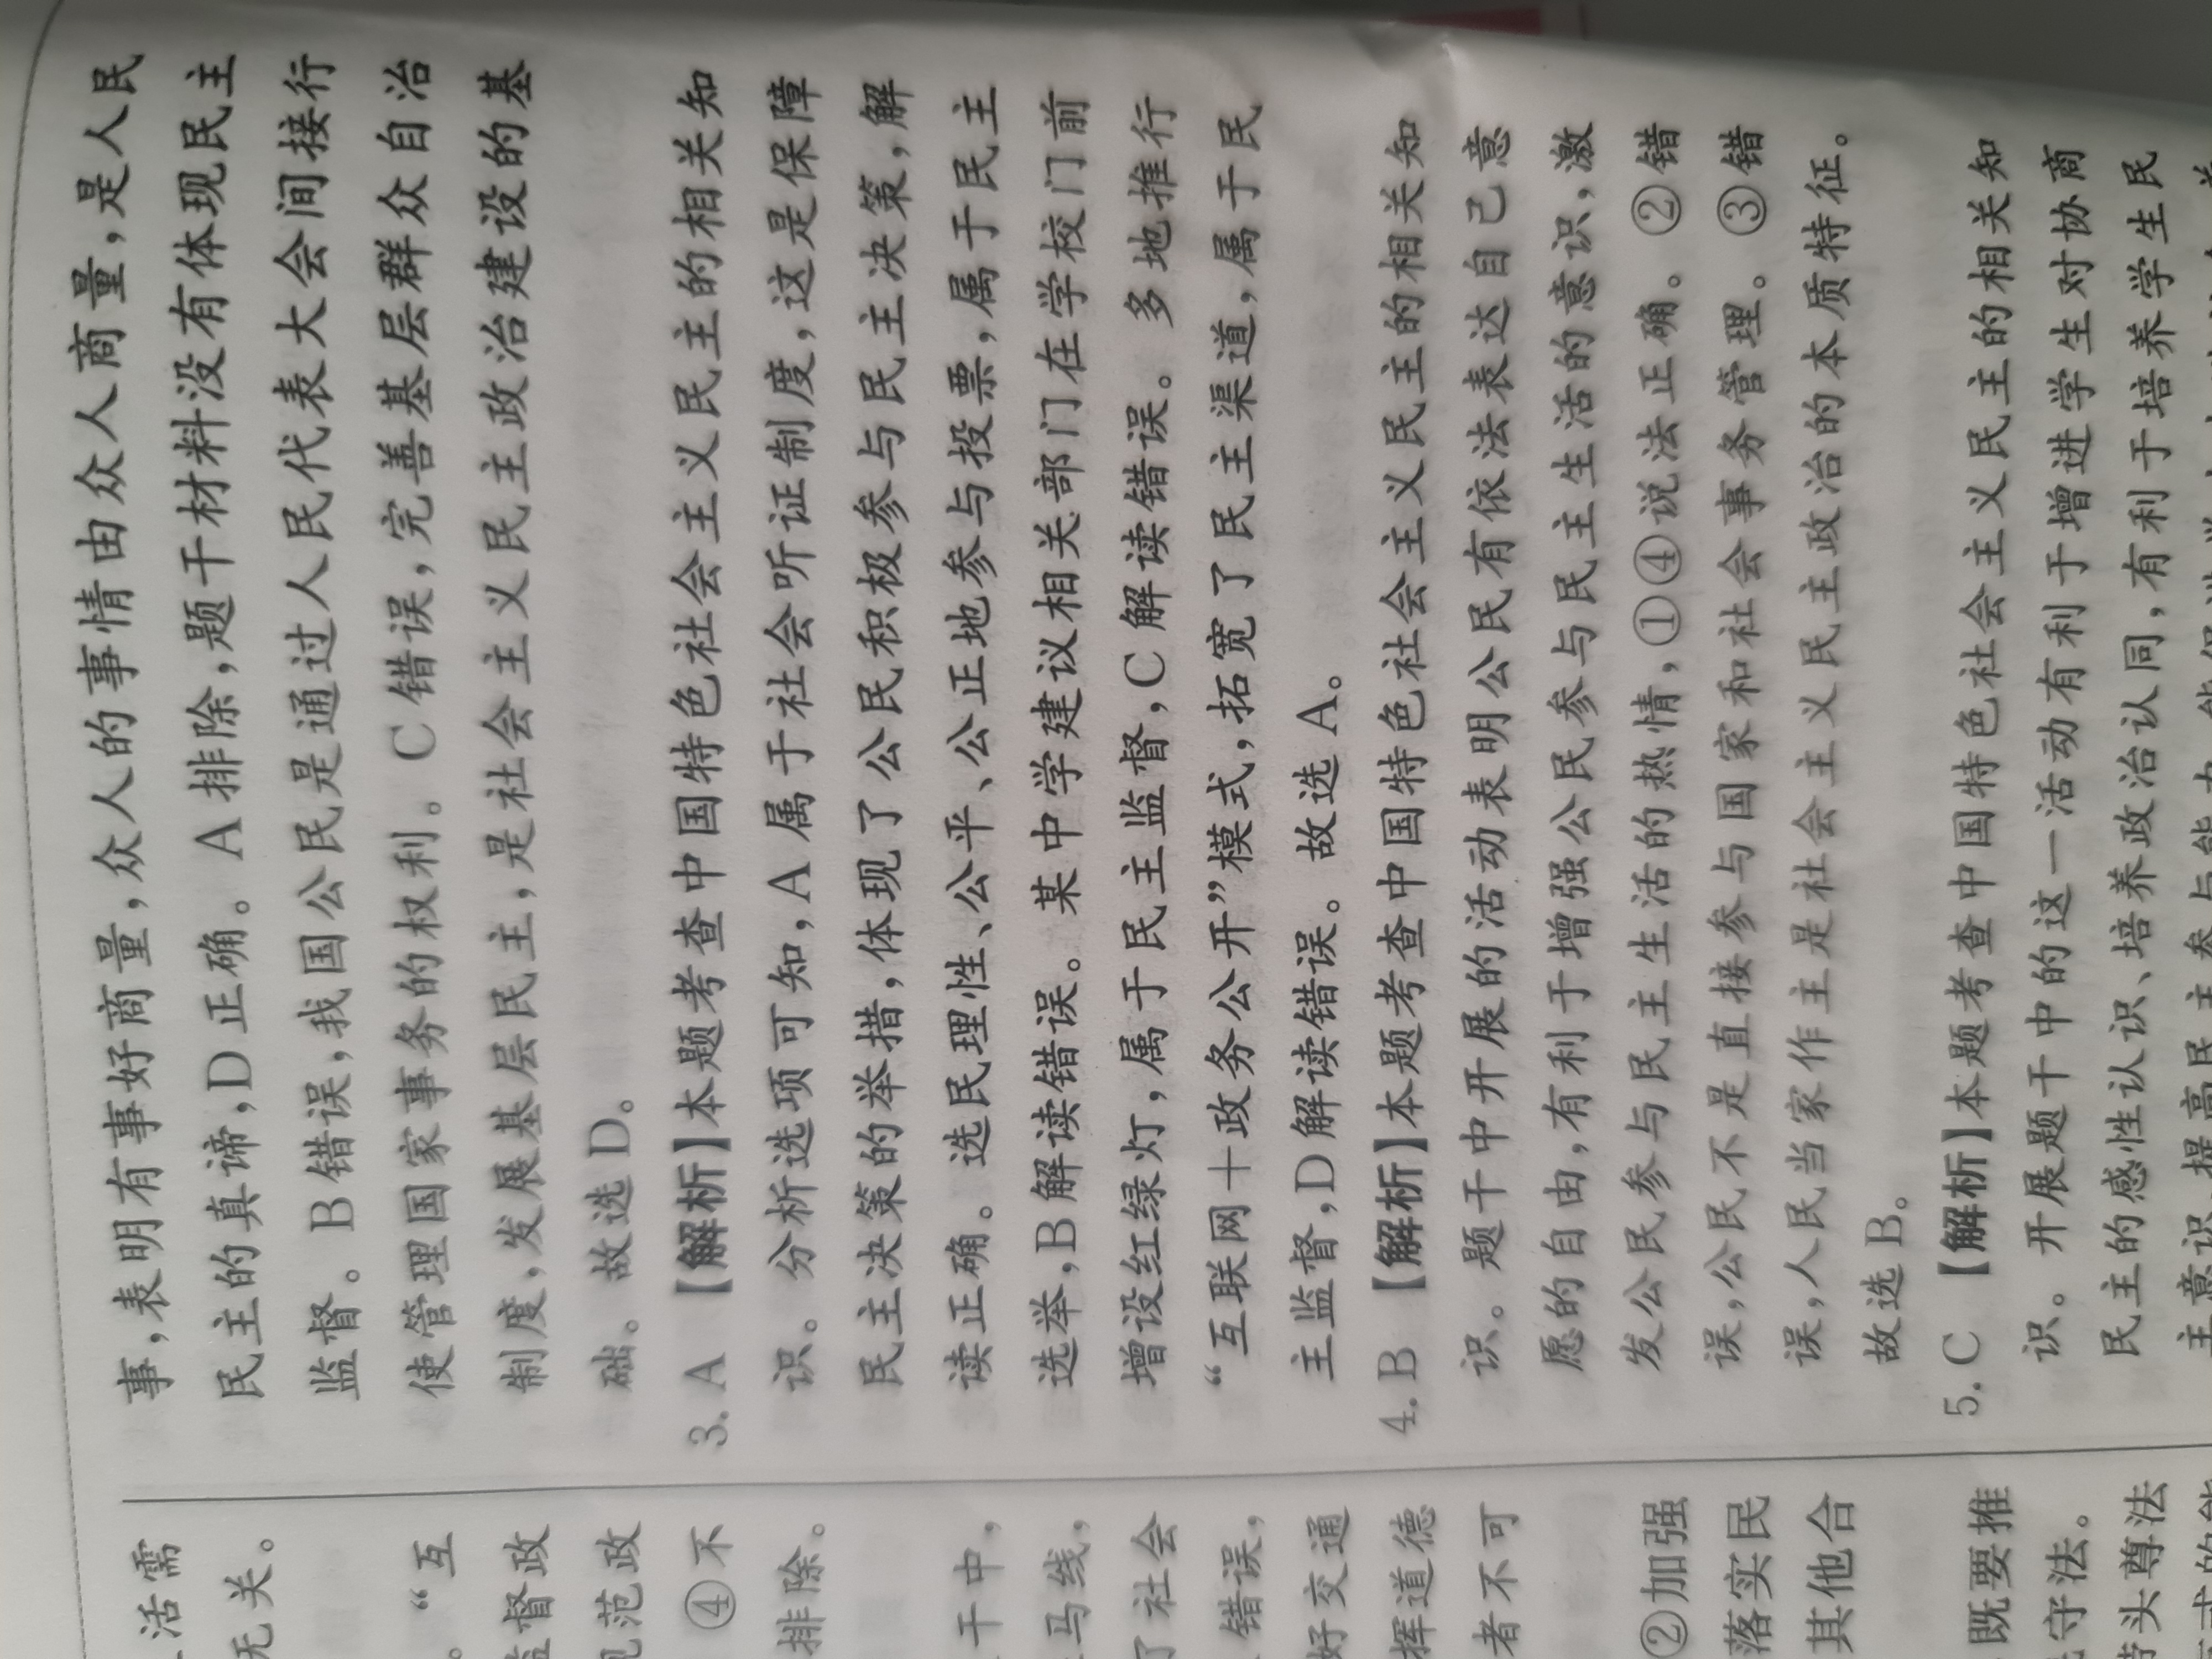 活需
无关。
“互
监督政
规范政
④不
排除。
干中，
马线，
了社会
错误，
好交通
挥道德
者不可
②加强
落实民
其他合
既要推
守法。
带头尊法
事，表明有事好商量，众人的事情由众人商量，是人民
民主的真谛，D正确。A排除，题干材料没有体现民主
监督。B错误，我国公民是通过人民代表大会间接行
使管理国家事务的权利。C错误，完善基层群众自治
制度，发展基层民主，是社会主义民主政治建设的基
础。故选D。
3. A 【解析】本题考查中国特色社会主义民主的相关知
识。分析选项可知，A属于社会听证制度，这是保障
民主决策的举措，体现了公民积极参与民主决策，解
读正确。选民理性、公平、公正地参与投票，属于民主
选举，B解读错误。某中学建议相关部门在学校门前
增设红绿灯，属于民主监督，C解读错误。多地推行
“互联网＋政务公开”模式，拓宽了民主渠道，属于民
主监督，D解读错误。故选A。
4. B 【解析】本题考查中国特色社会主义民主的相关知
识。题干中开展的活动表明公民有依法表达自己意
愿的自由，有利于增强公民参与民主生活的意识，激
发公民参与民主生活的热情，①④说法正确。②错
误，公民不是直接参与国家和社会事务管理。③错
误，人民当家作主是社会主义民主政治的本质特征。
故选B。
5. C 【解析】本题考查中国特色社会主义民主的相关知
识。开展题干中的这一活动有利于增进学生对协商
民主的感性认识、培养政治认同，有利于培养学生民
主意识，提高民主参与能力